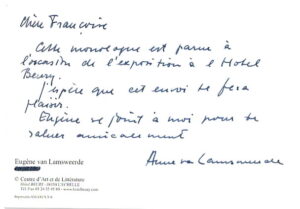 Chère Françoise
Cette monologue est parue à
l'occasion de l'exposition à l'Hotel
Beury.
J'espère que cet envoi te fera
plaisir.
Eugène se joint à moi pour te
saluer amicalement
Anne van Lamsweerde
Eugène van Lamsweerde
© Centre d'Art et de Littérature
Hôtel BEURY - 08260 L'ECHELLE